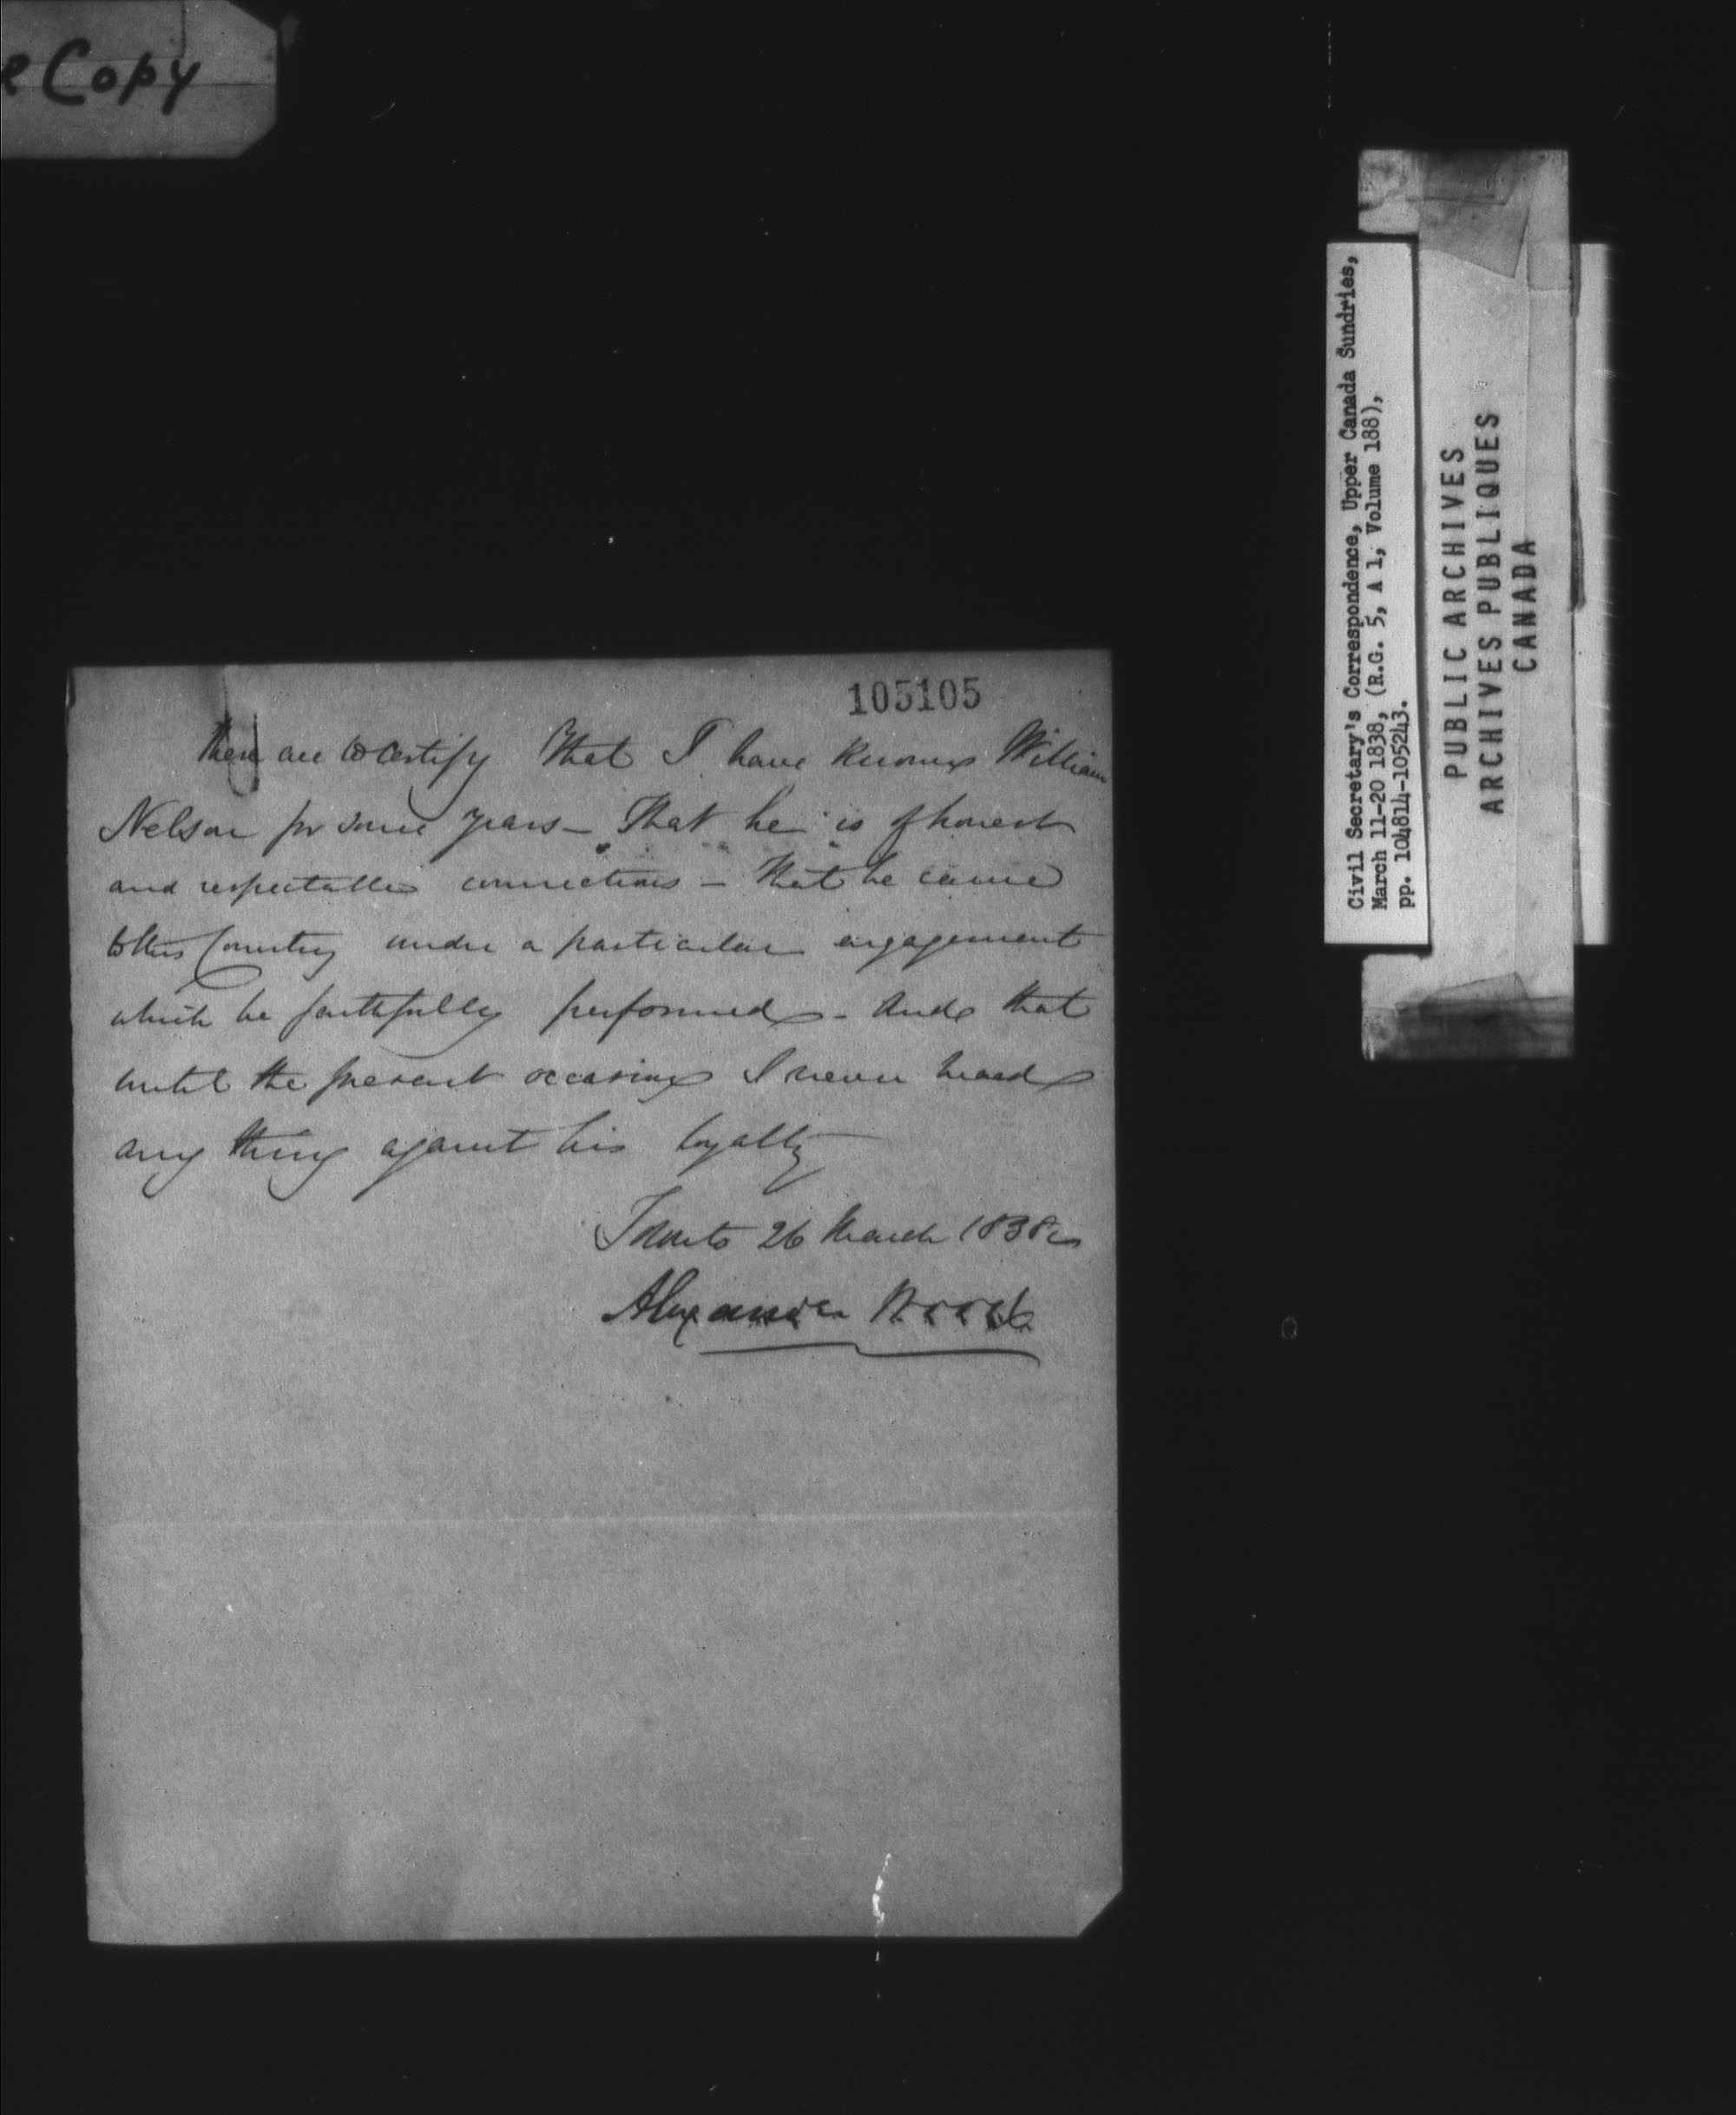 e Copy
105105
These are to certify That I have known William
Nelson for some years - That he is of honest
and respectable connections - that he came
to this Country under a particular engagement
which he faithfully performed - And that
until the present occasion I never heard
any thing against his loyalty
Toronto 26 March 1838
Alexander Wood
Civil Secretary's Correspondence, Upper Canada Sundries,
March 11-20 1838, (R.G. 5, A 1, Volume 188),
pp. 104814-105243.
PUBLIC ARCHIVES
ARCHIVES PUBLIQUES
CANADA